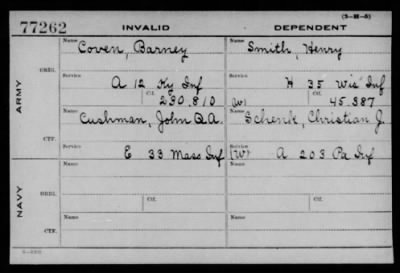 (3-H-5)
77262 INVALID DEPENDENT
Name Coven, Barney Name Smith, Henry
ARMY
ORIG.
Service A 12 Ky Inf Service H 35 Wis Inf
Ctf. 230.810 (W) Ctf. 45.887
Name Cushman, John Q.A. Name Schenk, Christian J.
CTF.
Service E 33 Mass Inf Service (W) A 203 Pa Inf
NAVY
Name Name
ORIG.
Service Ctf. Service Ctf.
Name Name
CTF.
Service Service